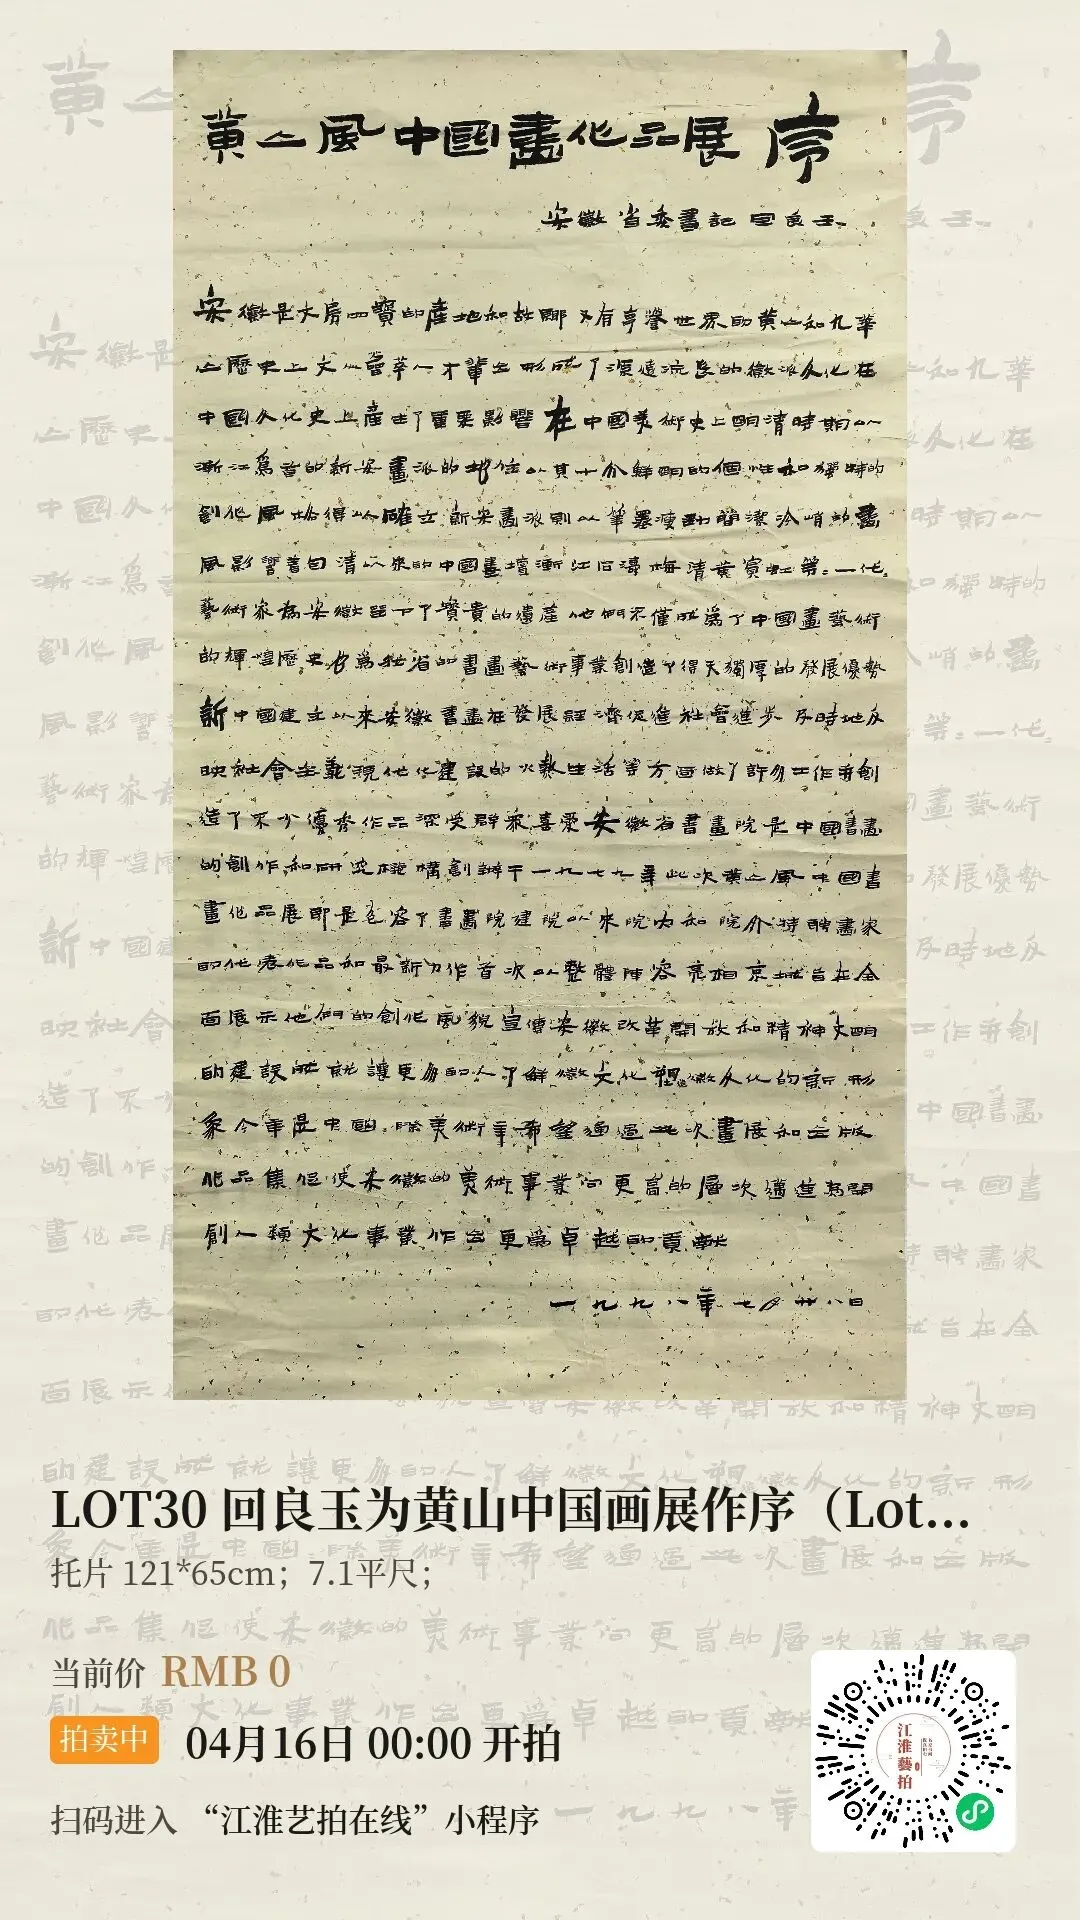 黄山風中國畫作品展序
安徽省委書記回良玉
安徽是文房四寶的產地和故鄉又有享譽世界的黄山和九華
山歷史上文人薈萃人才輩出形成了源遠流長的徽派文化在
中國文化史上產生了重要影響在中國美術史上明清時期以
漸江爲首的新安畫派的地位以其十分鮮明的個性和獨特的
創作風格得以確立新安畫派則以筆墨瘦勁簡潔冷峭的畫
風影響着自清以來的中國畫壇漸江石濤梅清黄賓虹等一代
藝術家為安徽留下了寶貴的遺產他們不僅成爲了中國畫藝術
的輝煌歷史也爲我省的書畫藝術事業創造了得天獨厚的發展優勢
新中國建立以來安徽書畫在發展經濟促進社會進步及時地反
映社會主義現代化建設的火熱生活等方面做了許多工作并創
造了不少優秀作品深受群衆喜愛安徽省書畫院是中國書畫
的創作和研究機構創辦于一九七九年此次黄山風中國書
畫作品展即是包容了書畫院建院以來院内和院外特聘畫家
的代表作品和最新力作首次以整體陣容亮相京城旨在全
面展示他們的創作風貌宣傳安徽改革開放和精神文明
的建設成就讓更多的人了解徽文化塑徽文化的新形
象今年是中國際美術年希望通過此次畫展和出版
作品集促使安徽的美術事業向更高的層次邁進爲開
創人類文化事業作出更爲卓越的貢獻
一九九八年七月廿八日
LOT30 回良玉为黄山中国画展作序（Lot...
托片 121*65cm；7.1平尺；
当前价 RMB 0
拍卖中 04月16日 00:00 开拍
扫码进入 “江淮艺拍在线”小程序
江淮藝拍